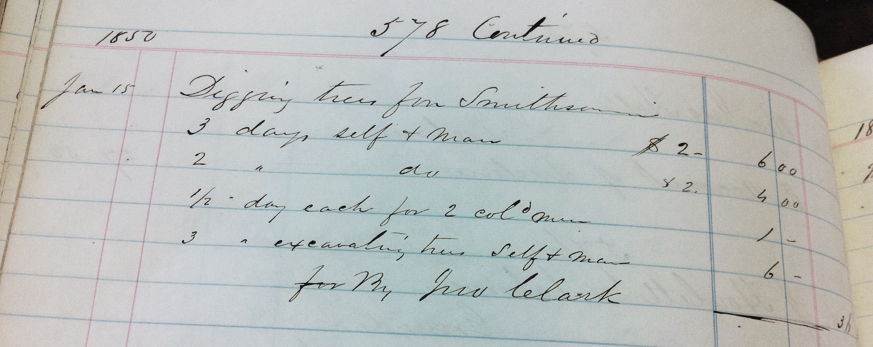 578 Continued
1850
Jan 15 Digging trees for Smithsonian
3 days self & man $ 2- 6 00
2 " do $ 2. 4 00
1/2 - day each for 2 col'd men 1 -
3 " excavating trees Self & man 6 -
for By Jno Clark
3
18